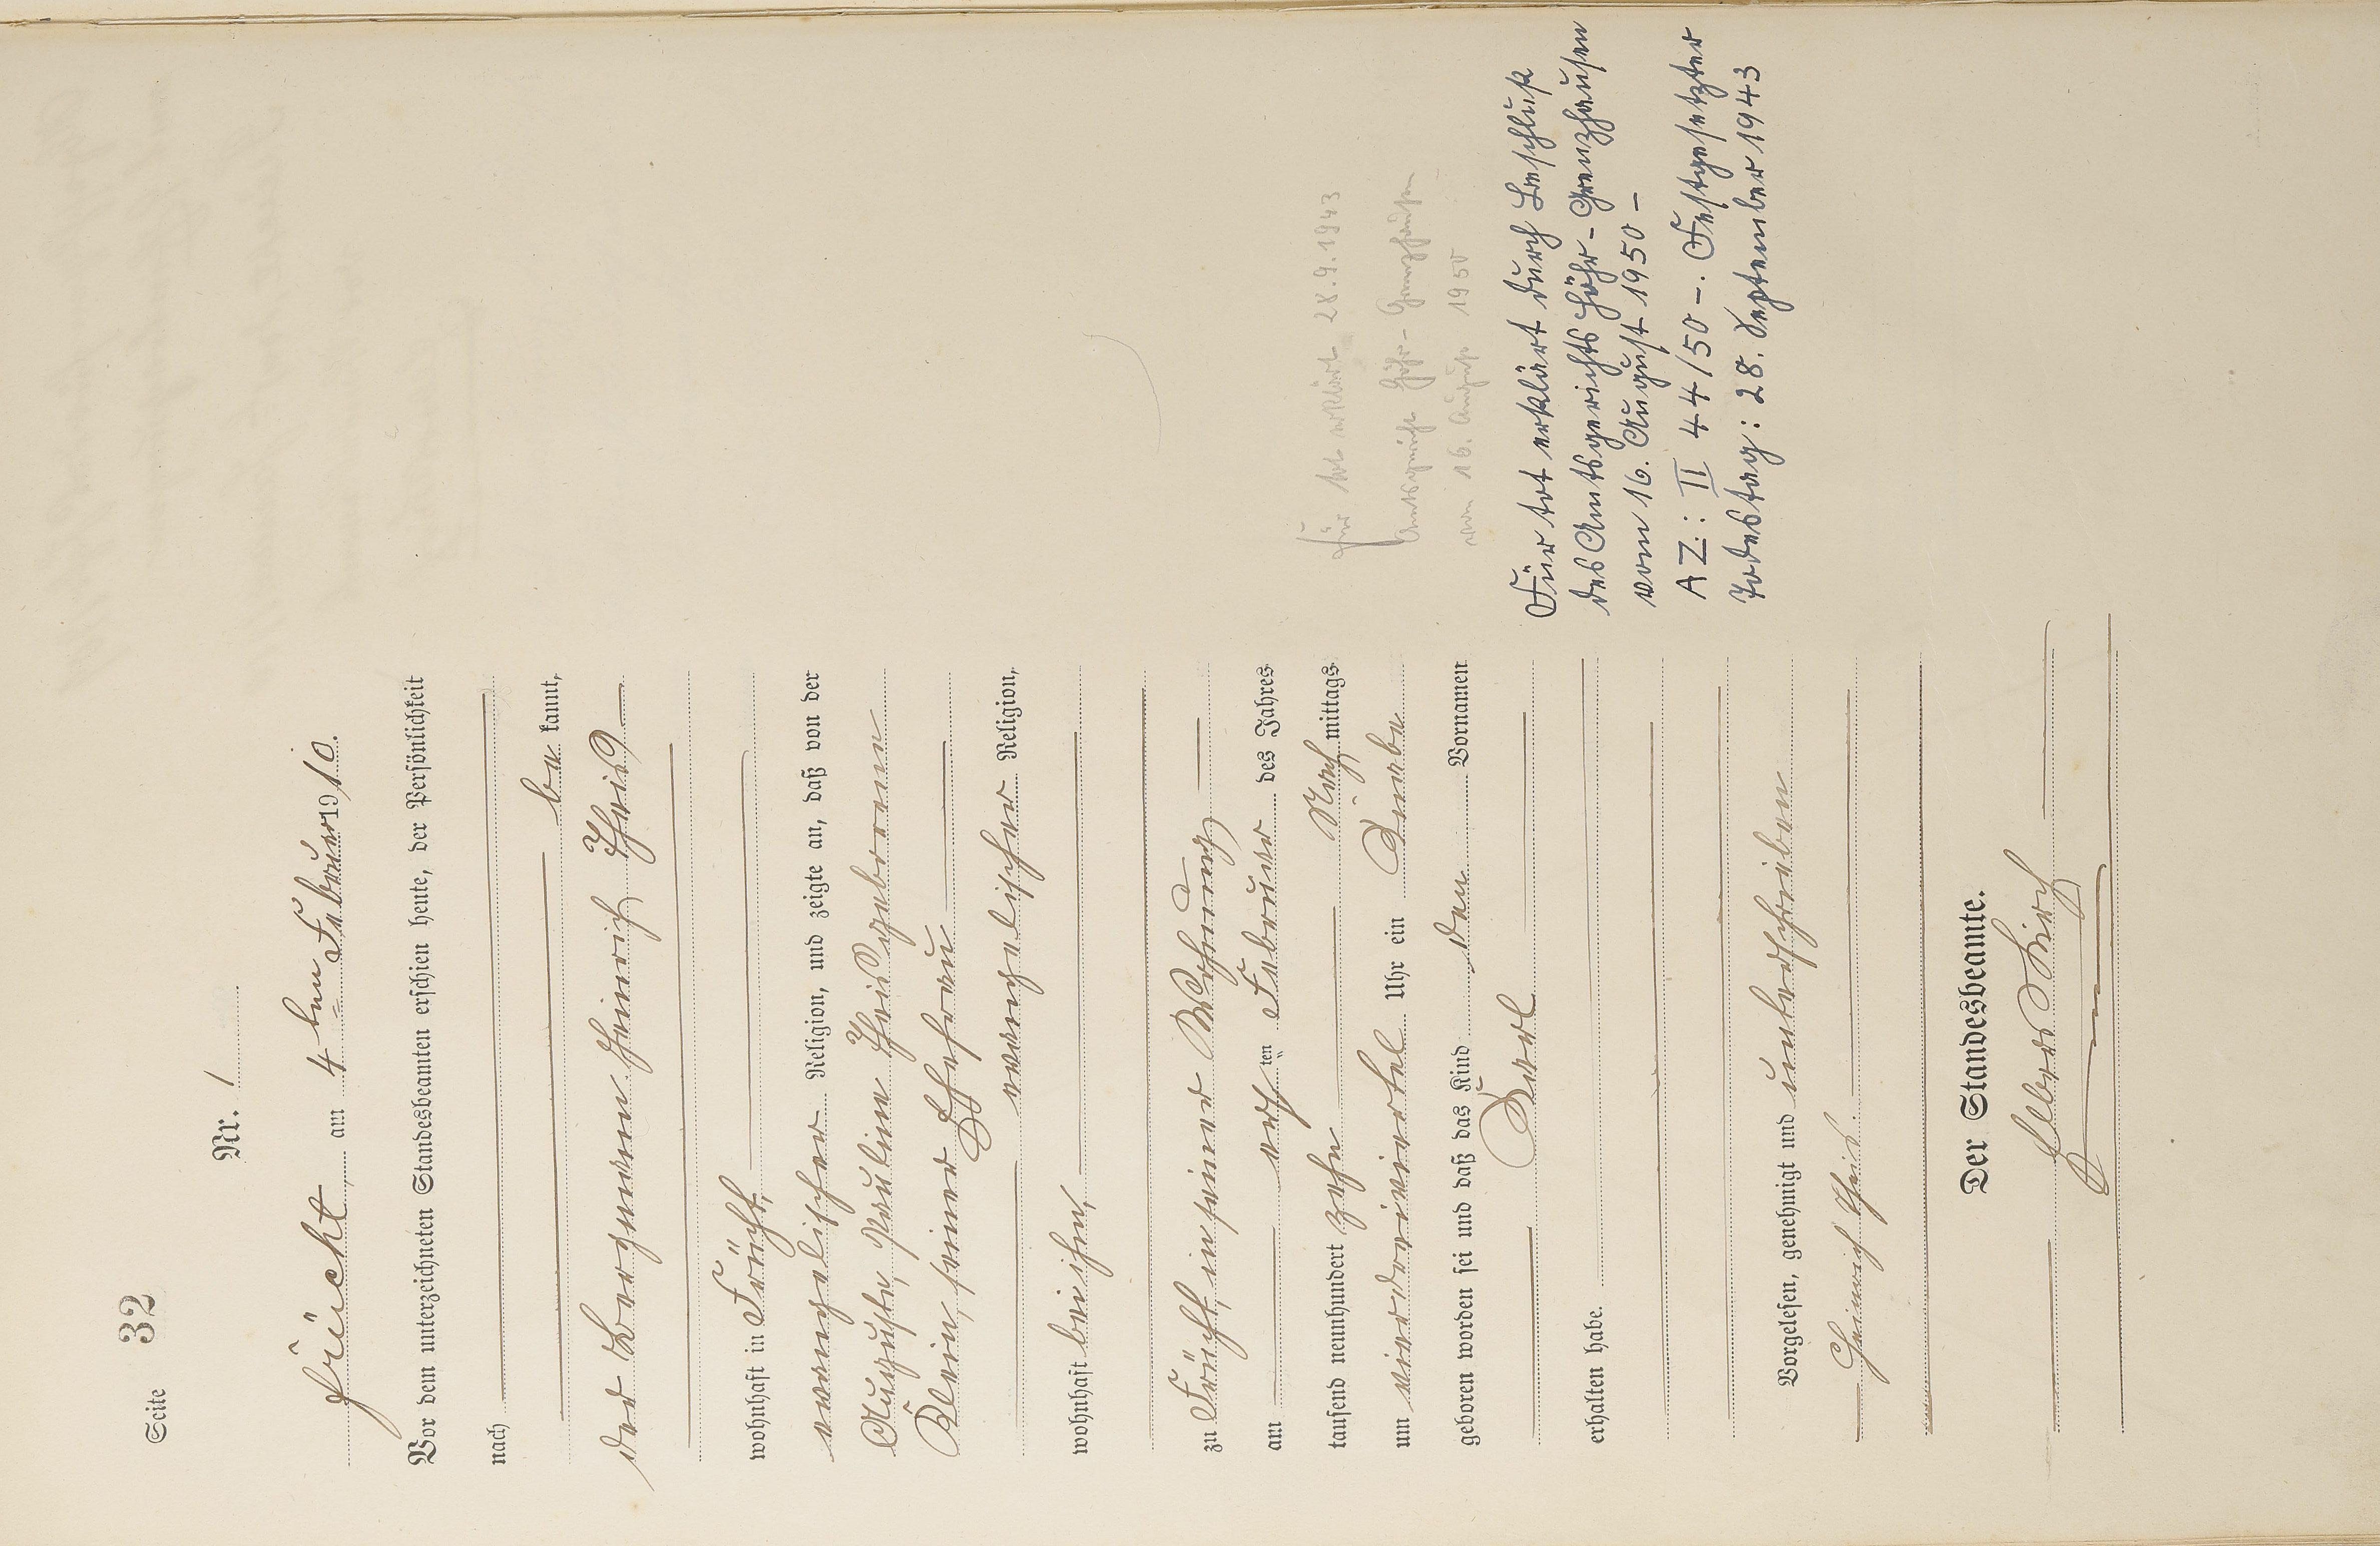 Seite 32
Nr. 1
Frücht, am 4ten Februar 1910.
Vor dem unterzeichneten Standesbeamten erschien heute, der Persönlichkeit
nach
be kannt,
der Bergmann Heinrich Theis
wohnhaft in Frücht,
evangelischer Religion, und zeigte an, daß von der
Auguste, Pauline Theis geborenen
Klein, seiner Ehefrau
evangelischer Religion,
wohnhaft bei ihm,
zu Frücht, in seiner Wohnung
am ersten Februar des Jahres
tausend neunhundert zehn Nach mittags
um vier dreiviertel Uhr ein Knabe
geboren worden sei und daß das Kind den Vornamen
Karl
erhalten habe.
Vorgelesen, genehmigt und unterschrieben
Heinrich Theis.
Der Standesbeamte.
für tot erklärt 28.9.1943
Amtsgericht Höhr-Grenzhausen
vom 16. August 1950
Für tot erklärt durch Beschluß
des Amtsgerichts Höhr-Grenzhausen
vom 16. August 1950 –
AZ: II 44/50 –. Festgesetzter
Todestag: 28. September 1943